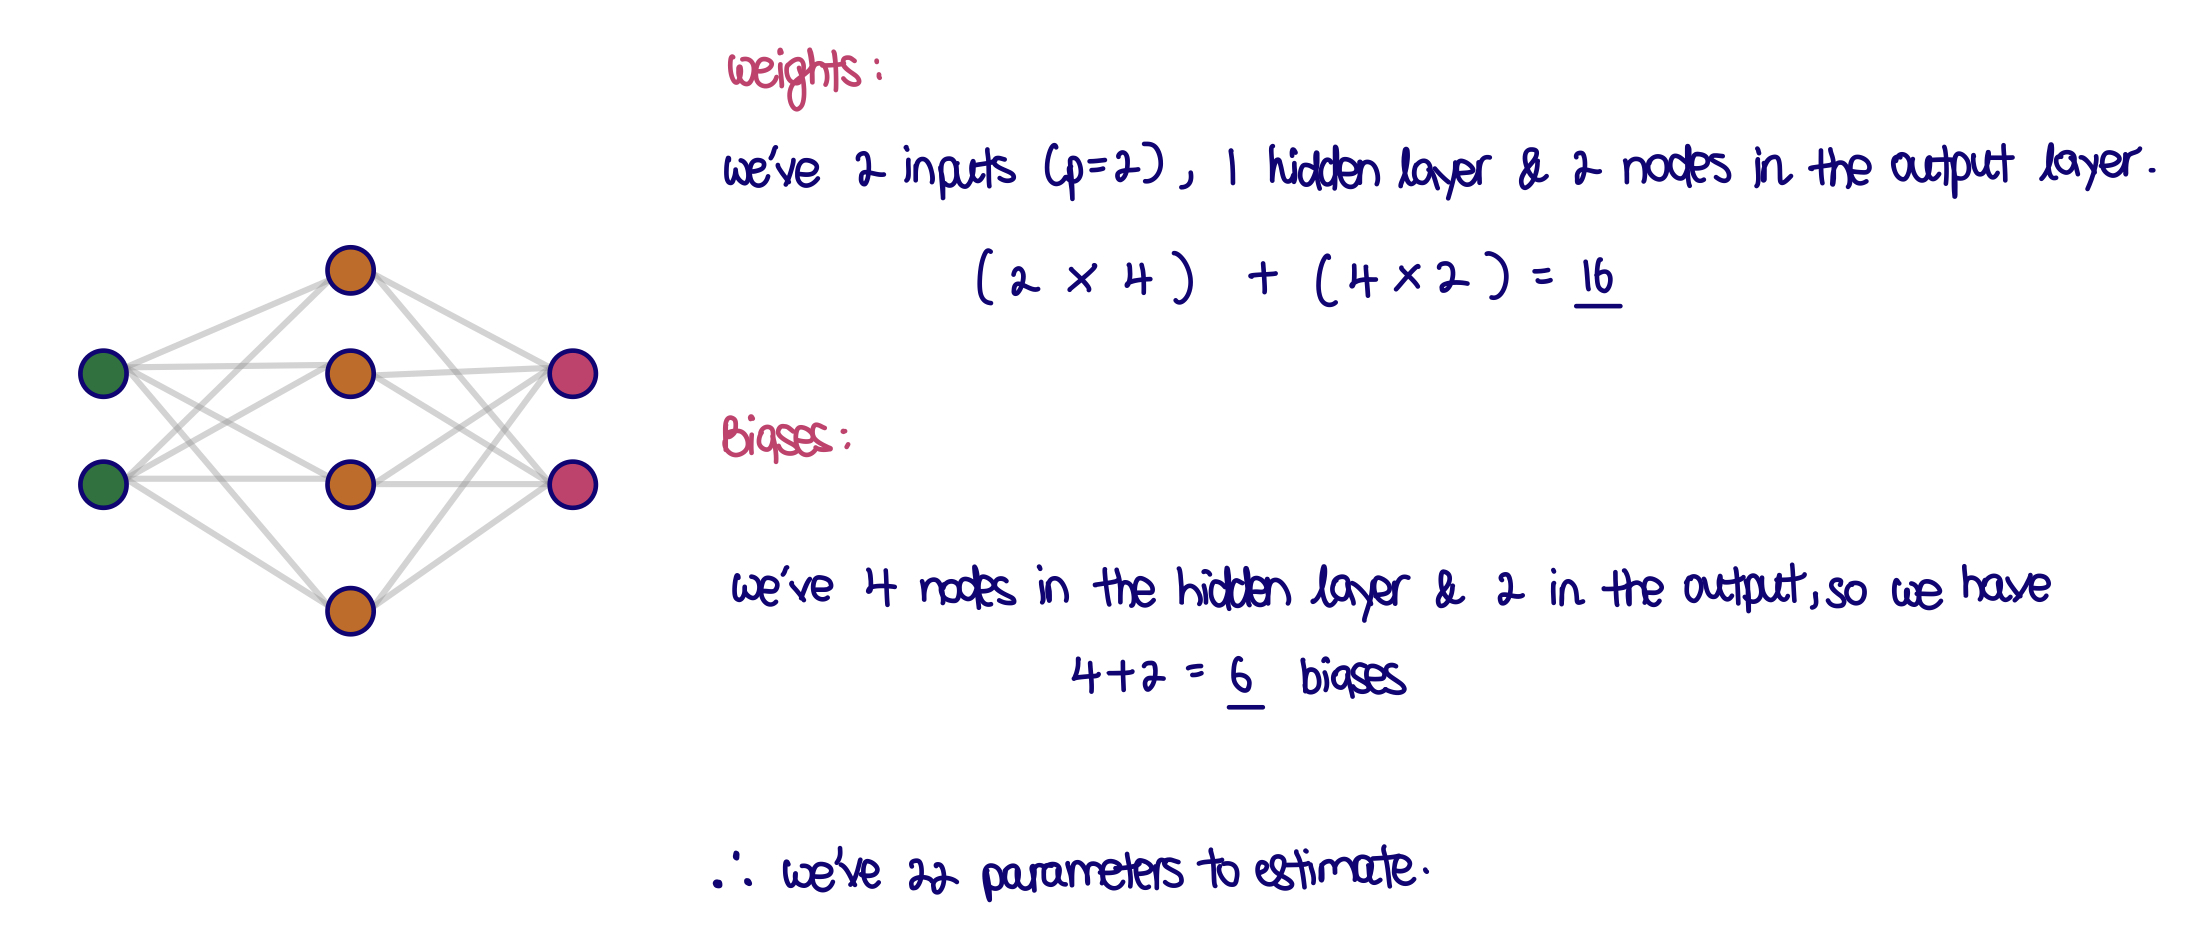 weights:
we've 2 inputs (p=2), 1 hidden layer & 2 nodes in the output layer.
(2 × 4) + (4 × 2) = 16
Biases:
we've 4 nodes in the hidden layer & 2 in the output, so we have
4+2 = 6 biases
∴ we've 22 parameters to estimate.